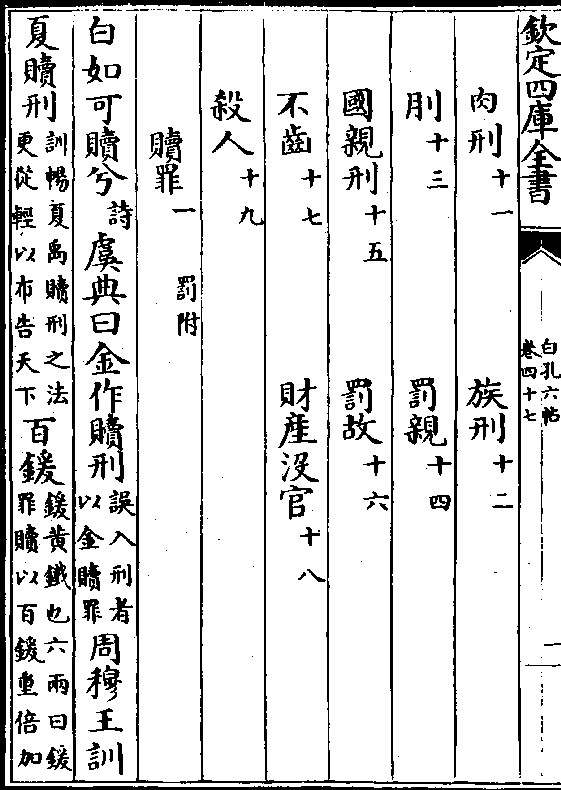 欽定四庫全書
白孔六帖
卷四十七
一
肉刑十一 族刑十二
刖十三 罰親十四
國親刑十五 罰故十六
不齒十七 財產没官十八
殺人十九
贖罪一 罰附
白如可贖兮詩虞典曰金作贖刑誤入刑者以金贖罪周穆王訓
夏贖刑訓暢夏禹贖刑之法更從輕以布告天下百鍰鍰黄鐵也六兩曰鍰罪贖以百鍰重倍加